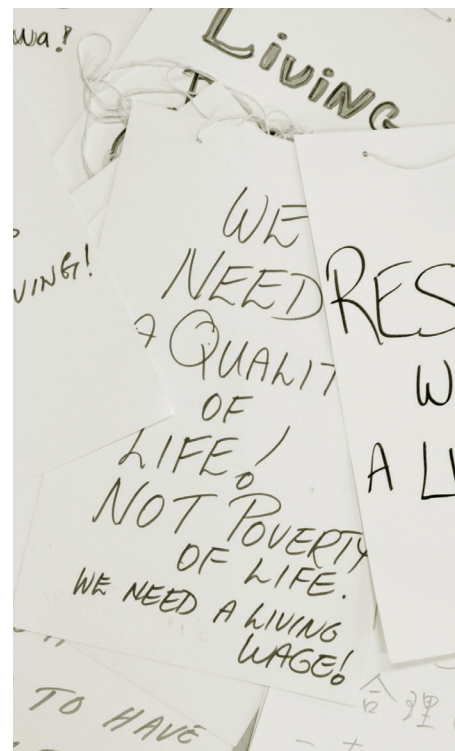 wa!
LiviNG
VING!
WE
NEED
A QUALIT
OF
LIFE!
NOT POVERTY
OF LIFE.
WE NEED A LIVING
WAGE!
RES
W
A LI
TO HAVE
合理